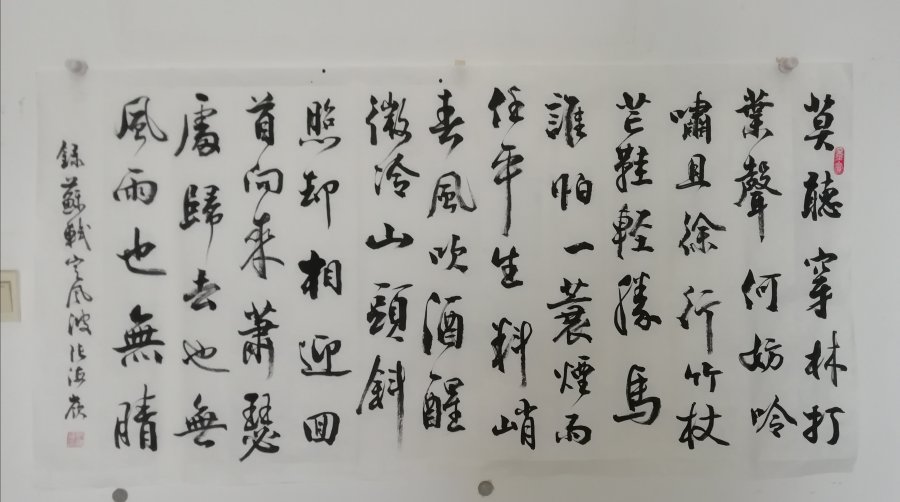 莫聽穿林打
葉聲何妨吟
嘯且徐行竹杖
芒鞋輕勝馬
誰怕一蓑煙雨
任平生料峭
春風吹酒醒
微冷山頭斜
照却相迎回
首向來蕭瑟
處歸去也無
風雨也無晴
錄蘇軾定風波